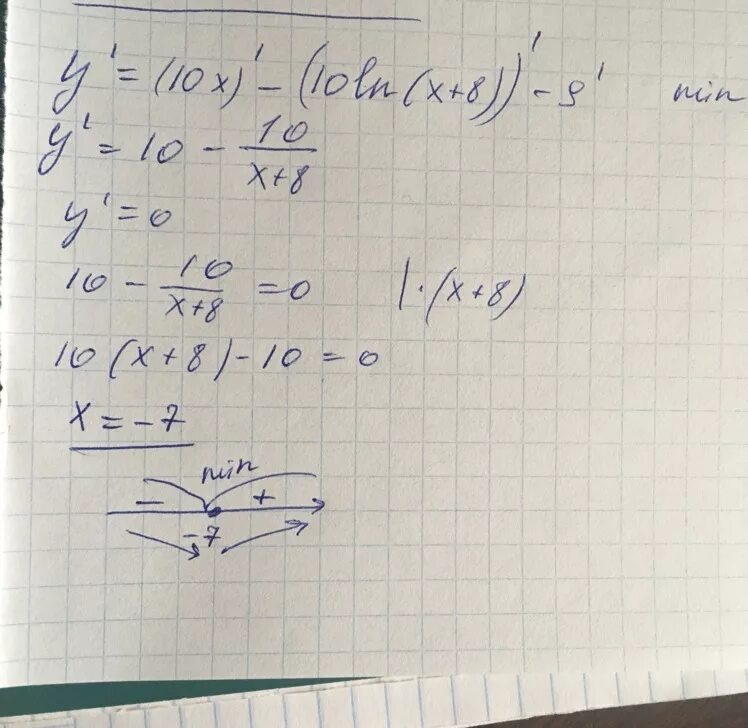 y' = (10x)' - (10ln(x+8))' - 9' min
y' = 10 - 10/(x+8)
y' = 0
10 - 10/(x+8) = 0 |·(x+8)
10(x+8) - 10 = 0
x = -7
min
- +
-7